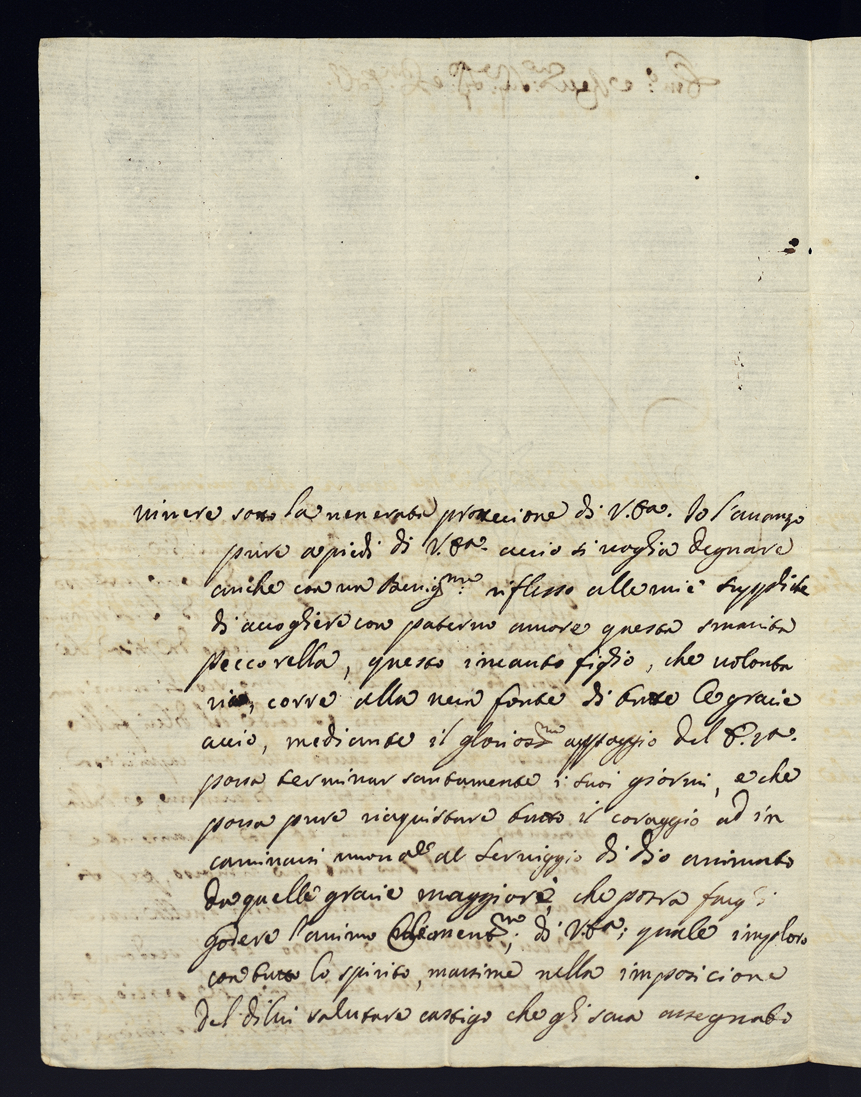 vivere sotto la venerata protezione di V.Ea. Io l'avanzo
pure a piedi di V.Ea. accio si voglia degnare
anche con un Benigmo: riflesso alle mie suppliche
di accogliere con paterno amore questa smarita
peccorella, questo incauto figlio, che volonta
rio, corre alla vera fonte di tutte le grazie
accio, mediante il gloriosmo appoggio del
possa terminar santamente i suoi giorni, e che
possa pure riaquistare tutto il coraggio ad in
caminarsi al serviggio di Dio animato
da quelle grazie maggiori, che potra fargli
godere l'animo Clementmo; di V.Ea; quale imploro
con tutto lo spirito, massime nella imposizione
del di lui salutare castigo che gli sara assegnato